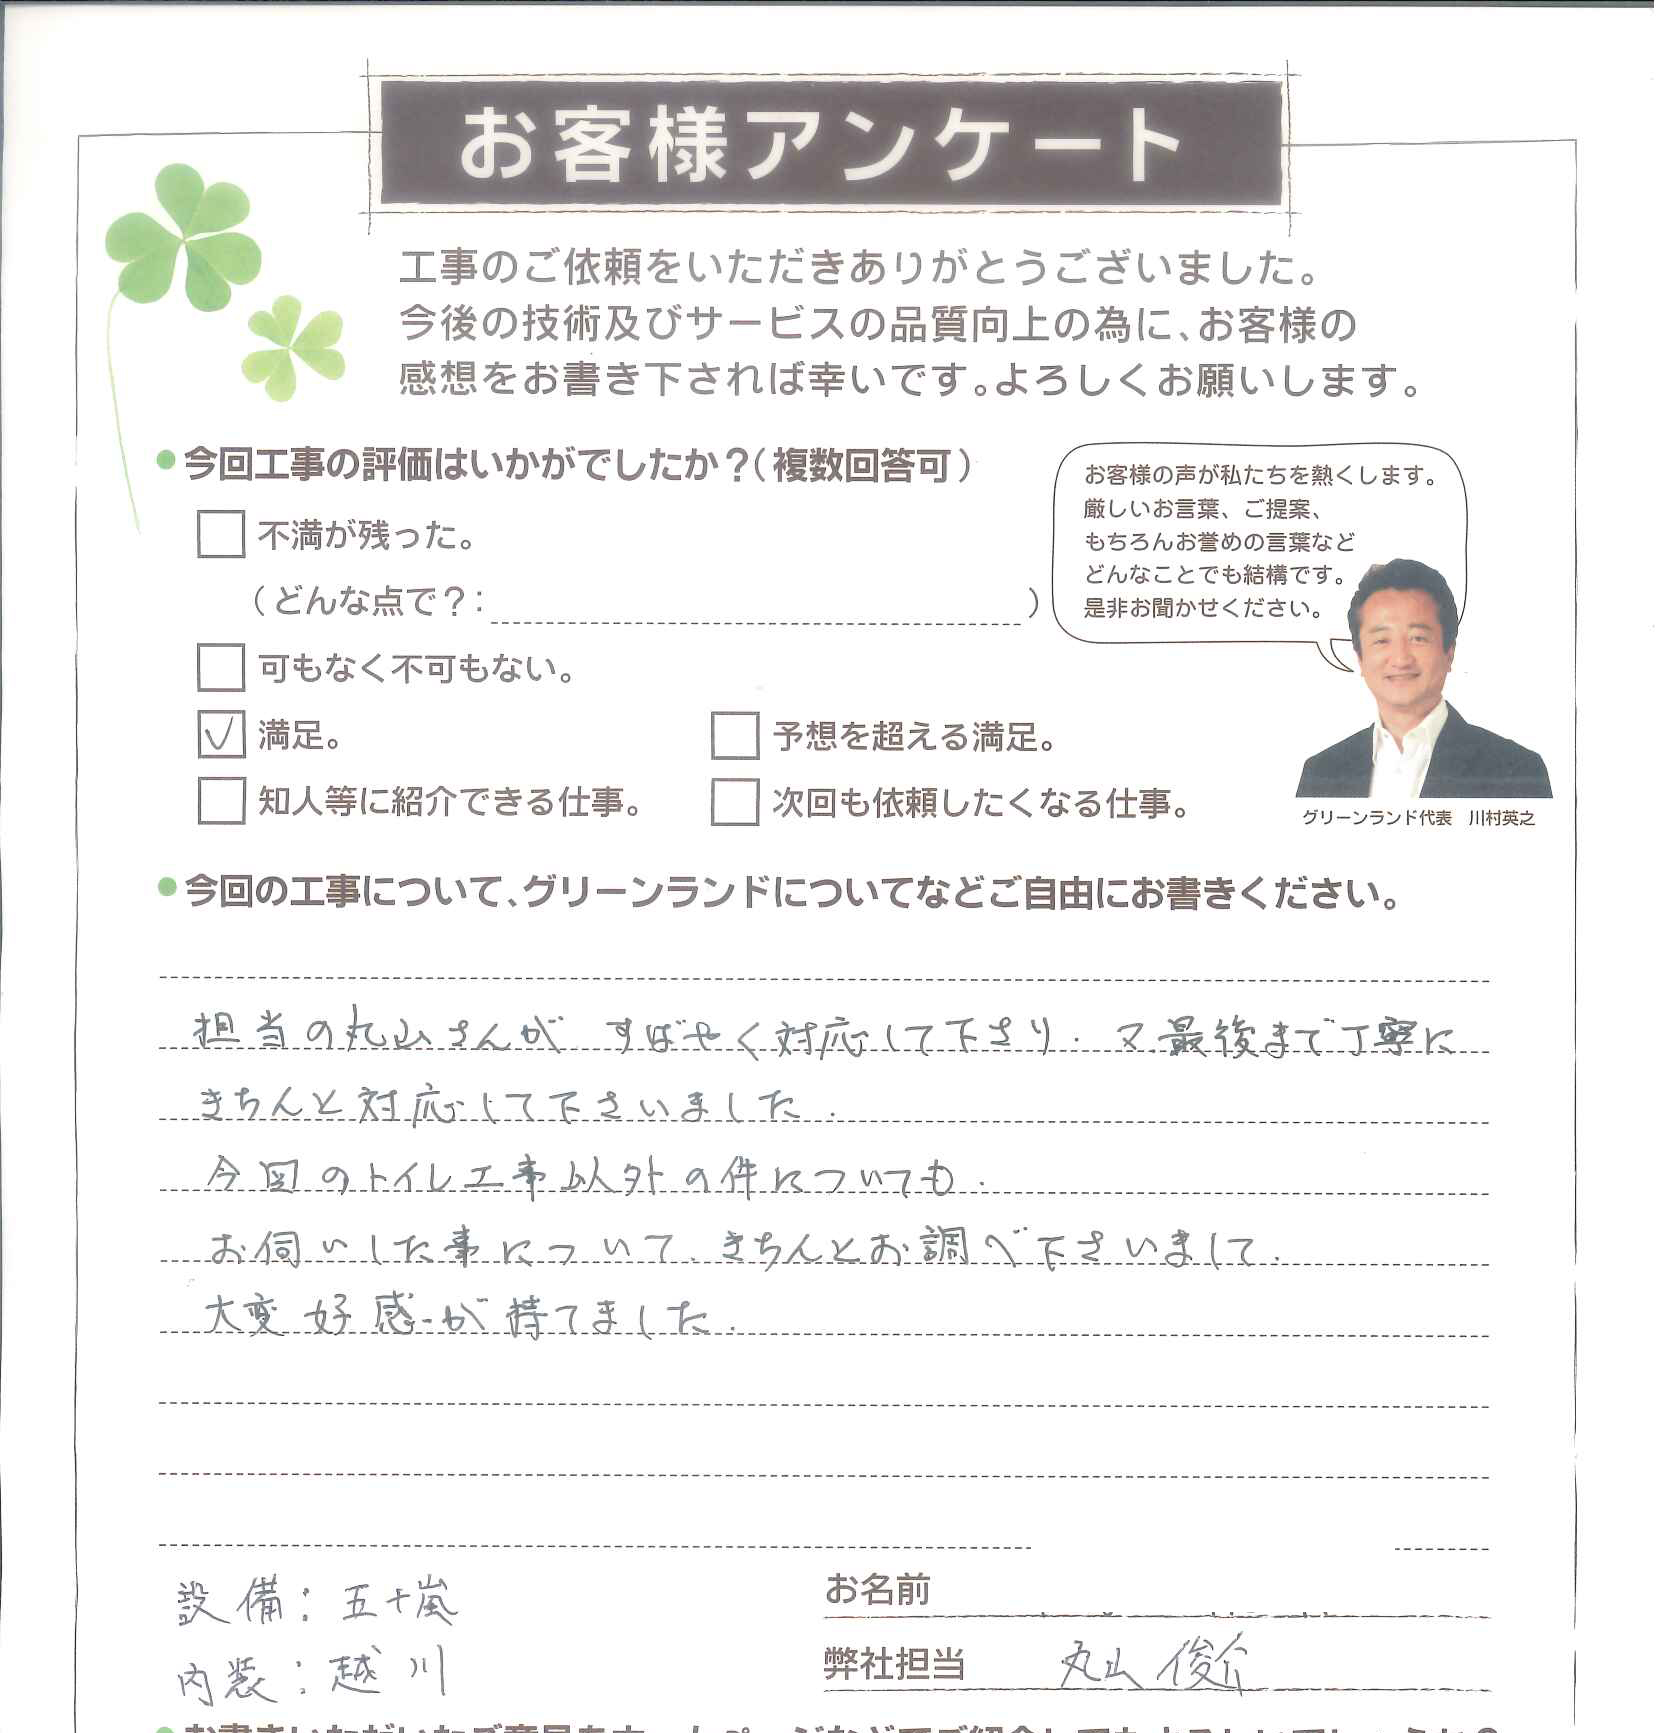 お客様アンケート
工事のご依頼をいただきありがとうございました。
今後の技術及びサービスの品質向上の為に、お客様の
感想をお書き下されば幸いです。よろしくお願いします。
●今回工事の評価はいかがでしたか？（複数回答可）
不満が残った。
（どんな点で？：　）
可もなく不可もない。
満足。
予想を超える満足。
知人等に紹介できる仕事。
次回も依頼したくなる仕事。
お客様の声が私たちを熱くします。
厳しいお言葉、ご提案、
もちろんお誉めの言葉など
どんなことでも結構です。
是非お聞かせください。
グリーンランド代表　川村英之
●今回の工事について、グリーンランドについてなどご自由にお書きください。
担当の丸山さんが すばやく対応して下さり. 又、最後まで丁寧に
きちんと対応して下さいました.
今回のトイレ工事以外の件についても.
お伺いした事について、きちんとお調べ下さいまして.
大変好感が持てました.
設備：五十嵐
内装：越川
お名前
弊社担当　丸山 俊介